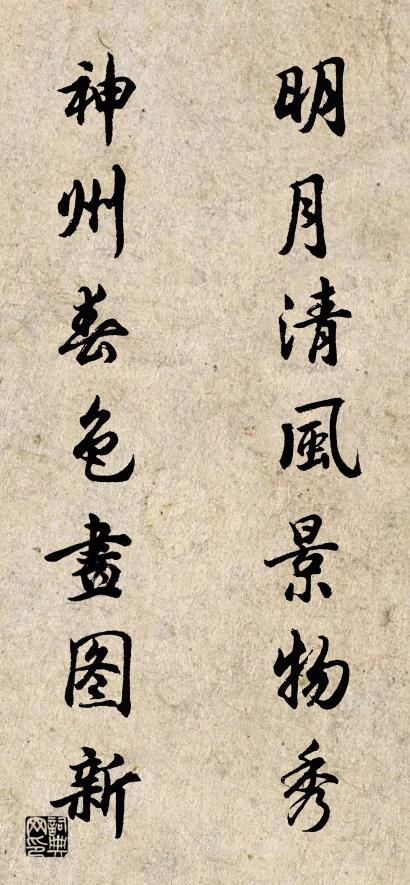 明月清風景物秀
神州春色畫图新
詞典网印